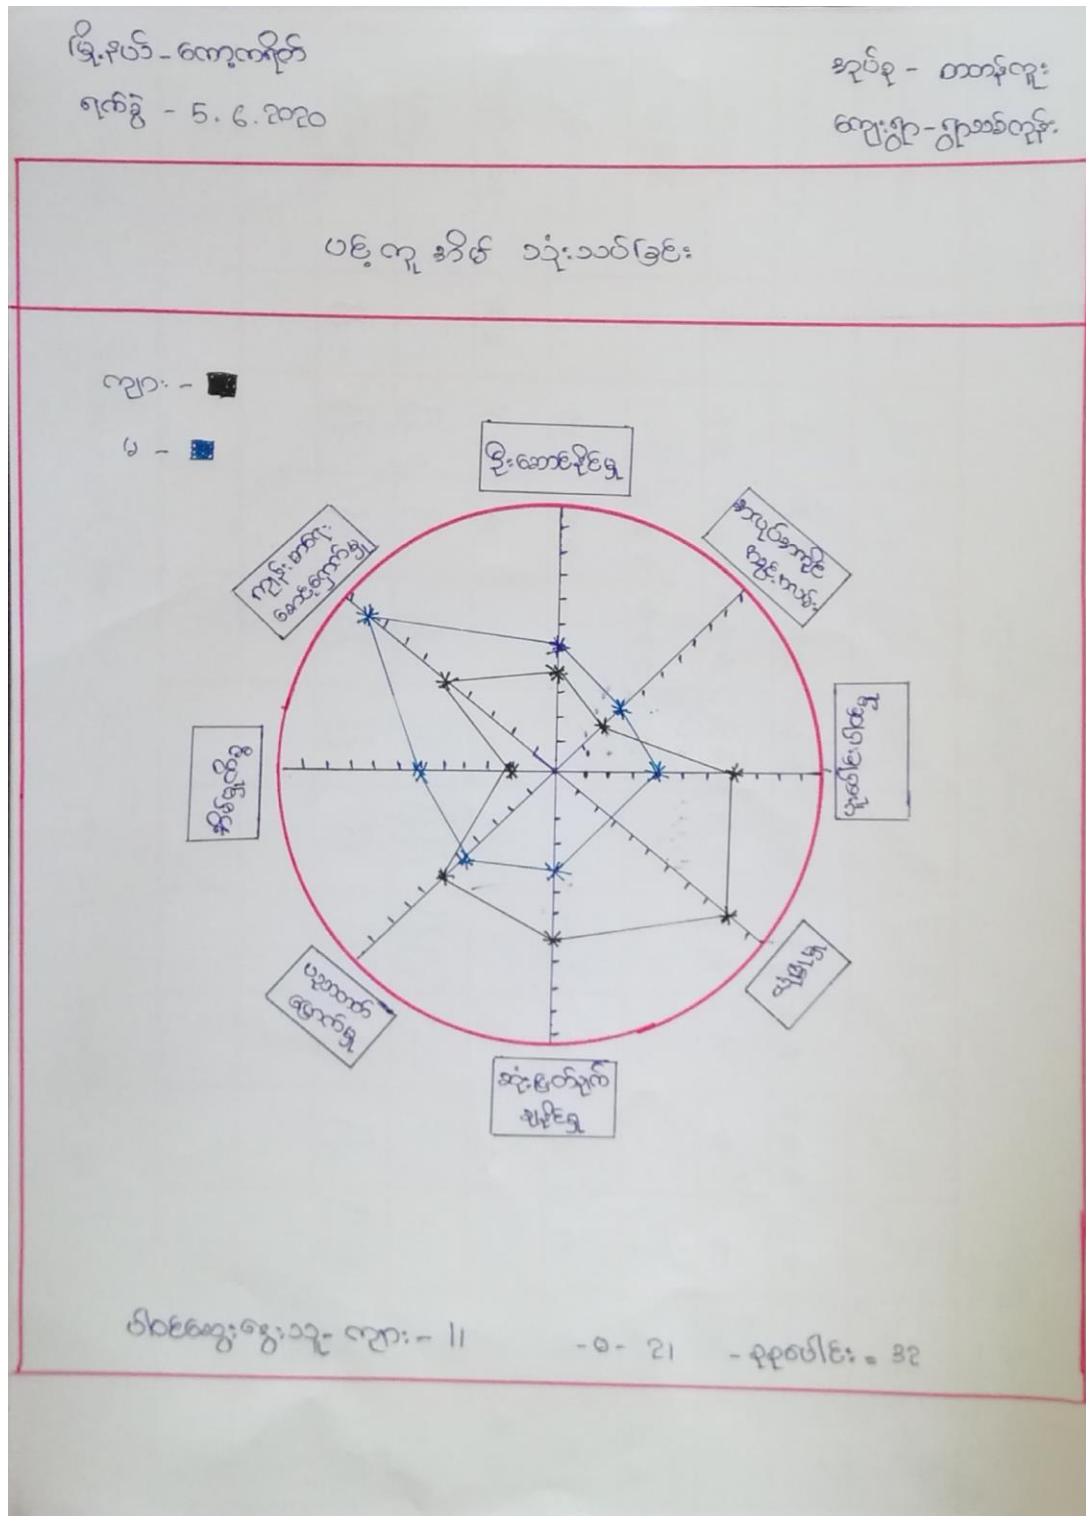 မြို့နယ် - ကော့ကရိတ်
ရက်စွဲ - 5.6.2020
အုပ်စု - တတန်ကူး
ကျေးရွာ - ရွာသစ်ကုန်း
ပင့်ကူအိမ် သုံးသပ်ခြင်း
ကျား -
မ -
ဦးဆောင်နိုင်မှု
အလုပ်အကိုင်
အခွင့်အလမ်း
ပူးပေါင်းပါဝင်မှု
လုံခြုံမှု
ဆုံးဖြတ်ချက်
ချနိုင်မှု
ပညာတတ်
မြောက်မှု
အိမ်မှုကိစ္စ
ကျန်းမာရေး
စောင့်ရှောက်မှု
ပါဝင်ဆွေးနွေးသူ - ကျား - 11 - မ - 21 - စုစုပေါင်း = 32